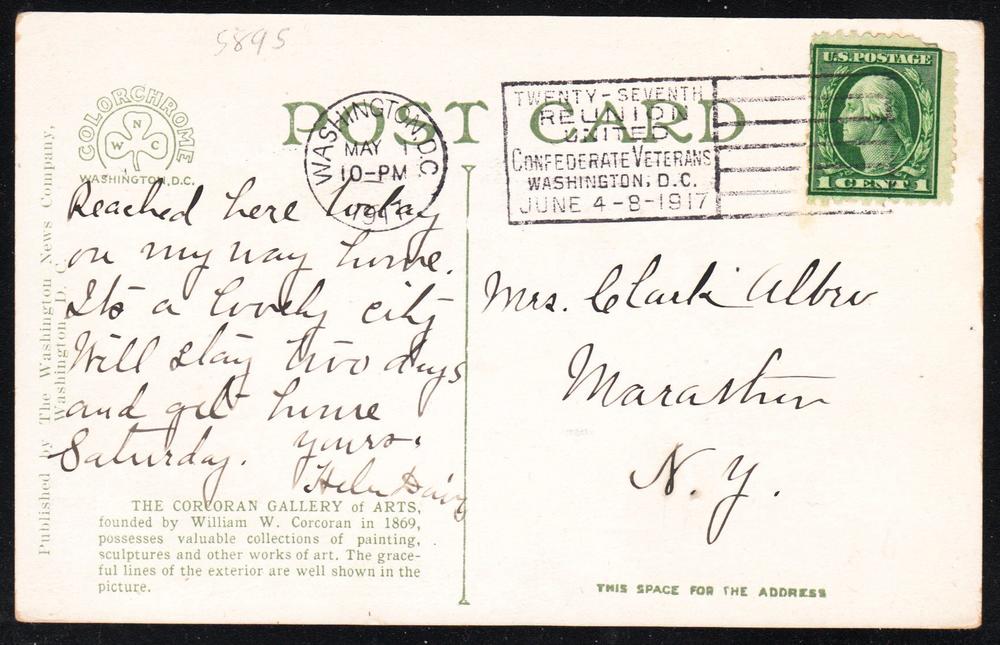 5895
COLORCHROME
N
W C
WASHINGTON, D.C.
POST CARD
WASHINGTON, D.C.
MAY
10-PM
1917
TWENTY-SEVENTH
REUNION
UNITED
CONFEDERATE VETERANS
WASHINGTON, D.C.
JUNE 4-8-1917
U.S. POSTAGE
1 CENT 1
Published by The Washington News Company,
Washington D. C.
Reached here today
on my way home.
Its a lovely city
Will stay two days
and get home
Saturday. yours.
Helen
THE CORCORAN GALLERY of ARTS,
founded by William W. Corcoran in 1869,
possesses valuable collections of painting,
sculptures and other works of art. The grace-
ful lines of the exterior are well shown in the
picture.
Mrs. Clark
Marathon
N. Y.
THIS SPACE FOR THE ADDRESS